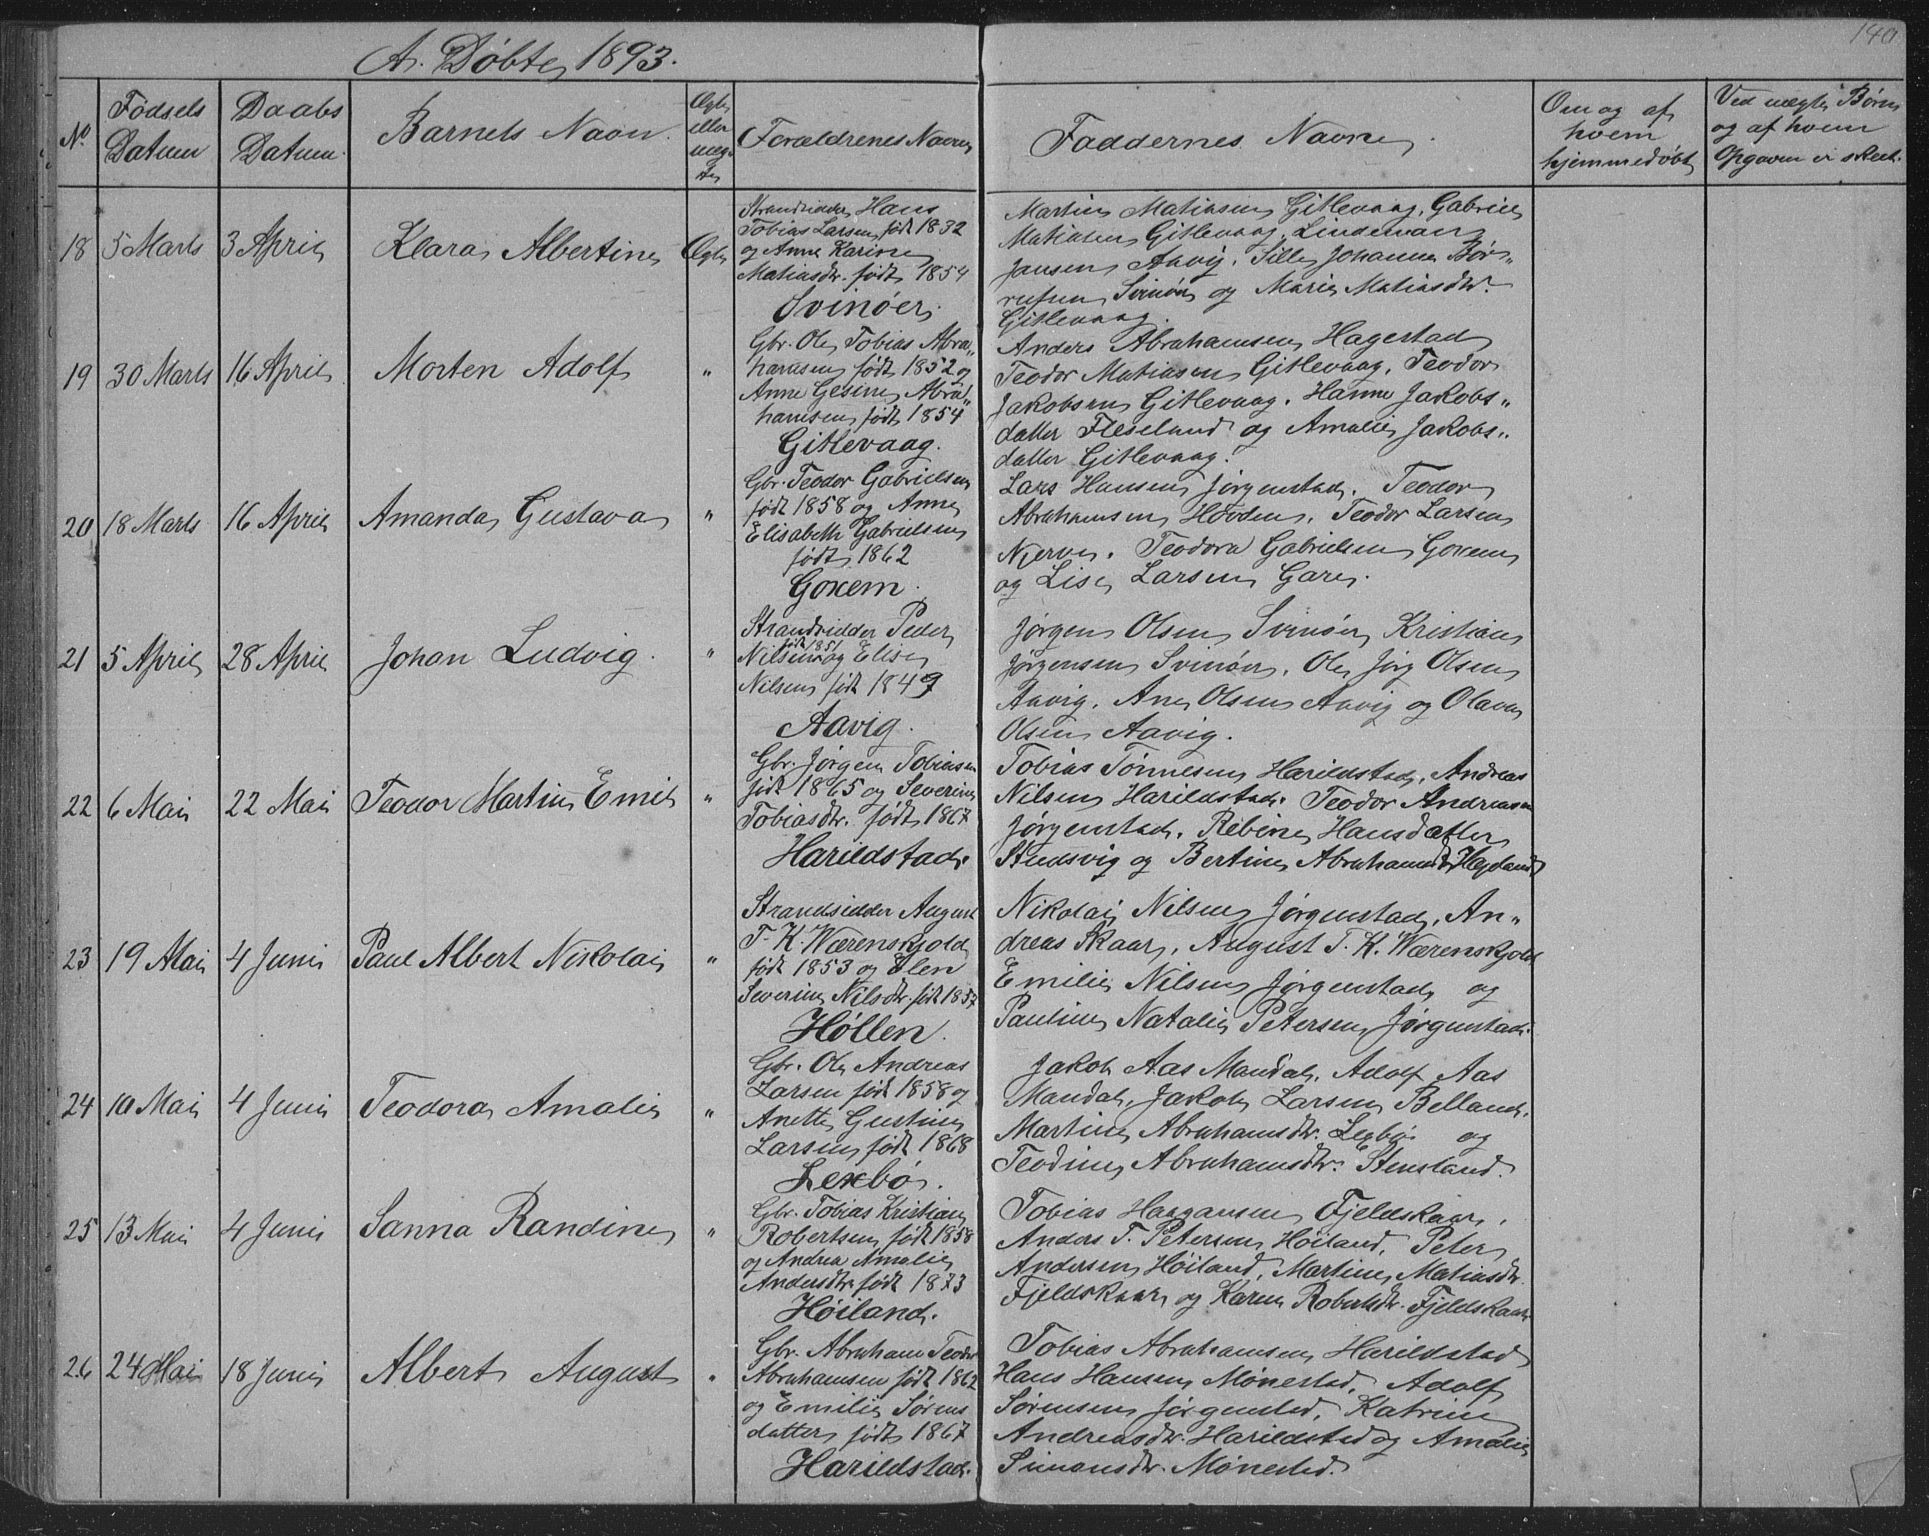 140
A. Døbte 1893.
No
Fødsels Datum
Daabs Datum
Barnets Navn
Ægte eller uægte
Forældrenes Navne
Faddernes Navne
Om og af hvem hjemmedøbt
Ved uægte Børn og af hvem Opgaven er skeet.
18 5 Marts 3 April Klara Albertine Ægte
Strandsidder Hans
Tobias Larsen født 1832
og Anne Karine
Matiasdtr. født 1854
Svinøer.
Martin Matiasen Gitlevaag, Gabriel
Matiasen Gitlevaag, Lindeman
Jansen Aavig, Sille Johanne Bør-
rufsen Svinør og Marie Matiasdtr.
Gitlevaag.
19 30 Marts 16 April Morten Adolf "
Gbr. Ole Tobias Abra"
hamsen født 1852 og
Anne Gesine Abra"
hamsen født 1854
Gitlevaag.
Anders Abrahamsen Hagestad
Teodor Matiasen Gitlevaag, Teodor
Jakobsen Gitlevaag. Hanne Jakobs"
datter Fleseland og Amalie Jakobs"
datter Gitlevaag.
20 18 Marts 16 April Amanda Gustava "
Gbr. Teodor Gabrielsen
født 1858 og Anne
Elisabeth Gabrielsen
født 1862
Goxem.
Lars Hansen Jørgenstad. Teodor
Abrahamsen Hovden. Teodor Larsen
Njerve. Teodora Gabrielsen Goxem
og Lise Larsen Gare.
21 5 April 28 April Johan Ludvig. "
Strandsidder Peder
født 1851
Nilsen og Elise
Nilsen født 1849
Aavig.
Jørgen Olsen Svinøer, Kristian
Jørgensen Svinøer. Ole Jørg Olsen
Aavig. Ane Olsen Aavig og Olava
Olsen Aavig.
22 6 Mai 22 Mai Teodor Martin Emil "
Gbr. Jørgen Tobiasen
født 1865 og Severine
Tobiasdtr. født 1867
Harildstad.
Tobias Tønnesen Harildstad, Andreas
Nilsen Harildstad. Teodor Andreasen
Jørgenstad. Rebine Hansdatter
Studsvig og Bertine Abrahamsdtr Hegland
23 19 Mai 4 Juni Paul Albert Nikolai "
Strandsidder August
T. K. Wærenskjold
født 1853 og Elen
Severine Nilsdtr. født 1857
Høllen.
Nikolai Nilsen Jørgenstad, An"
dreas Skaar, August T. K. Wærenskjold
Emilie Nilsen Jørgenstad og
Pauline Natalie Petersen Jørgenstad.
24 10 Mai 4 Juni Teodora Amalie "
Gbr. Ole Andreas
Larsen født 1858 og
Anette Gustine
Larsen født 1868
Lexbø.
Jakob Aas Mandal, Adolf Aas
Mandal, Jakob Larsen Belland,
Martine Abrahamsdtr. Lexbø og
Teodine Abrahamsdtr. Stensland.
25 13 Mai 4 Juni Sanna Randine "
Gbr. Tobias Kristian
Robertsen født 1858
og Andrea Amalie
Andersdtr. født 1873
Høiland.
Tobias Haagansen Fjeldskaar,
Anders T. Petersen Høiland, Peter
Andersen Høiland, Martine Matiasdtr.
Fjeldskaar og Karen Robertsdtr. Fjeldskaar
26 24 Mai 18 Juni Albert August "
Gbr. Abraham Teodor
Abrahamsen født 1862
og Emilie Sørens
datter født 1867
Harildstad.
Tobias Abrahamsen Harildstad
Hans Hansen Mønestad, Adolf
Sørensen Jørgensted, Katrine
Andreasdtr. Harildstad og Amalie
Simonsdtr. Mønested.